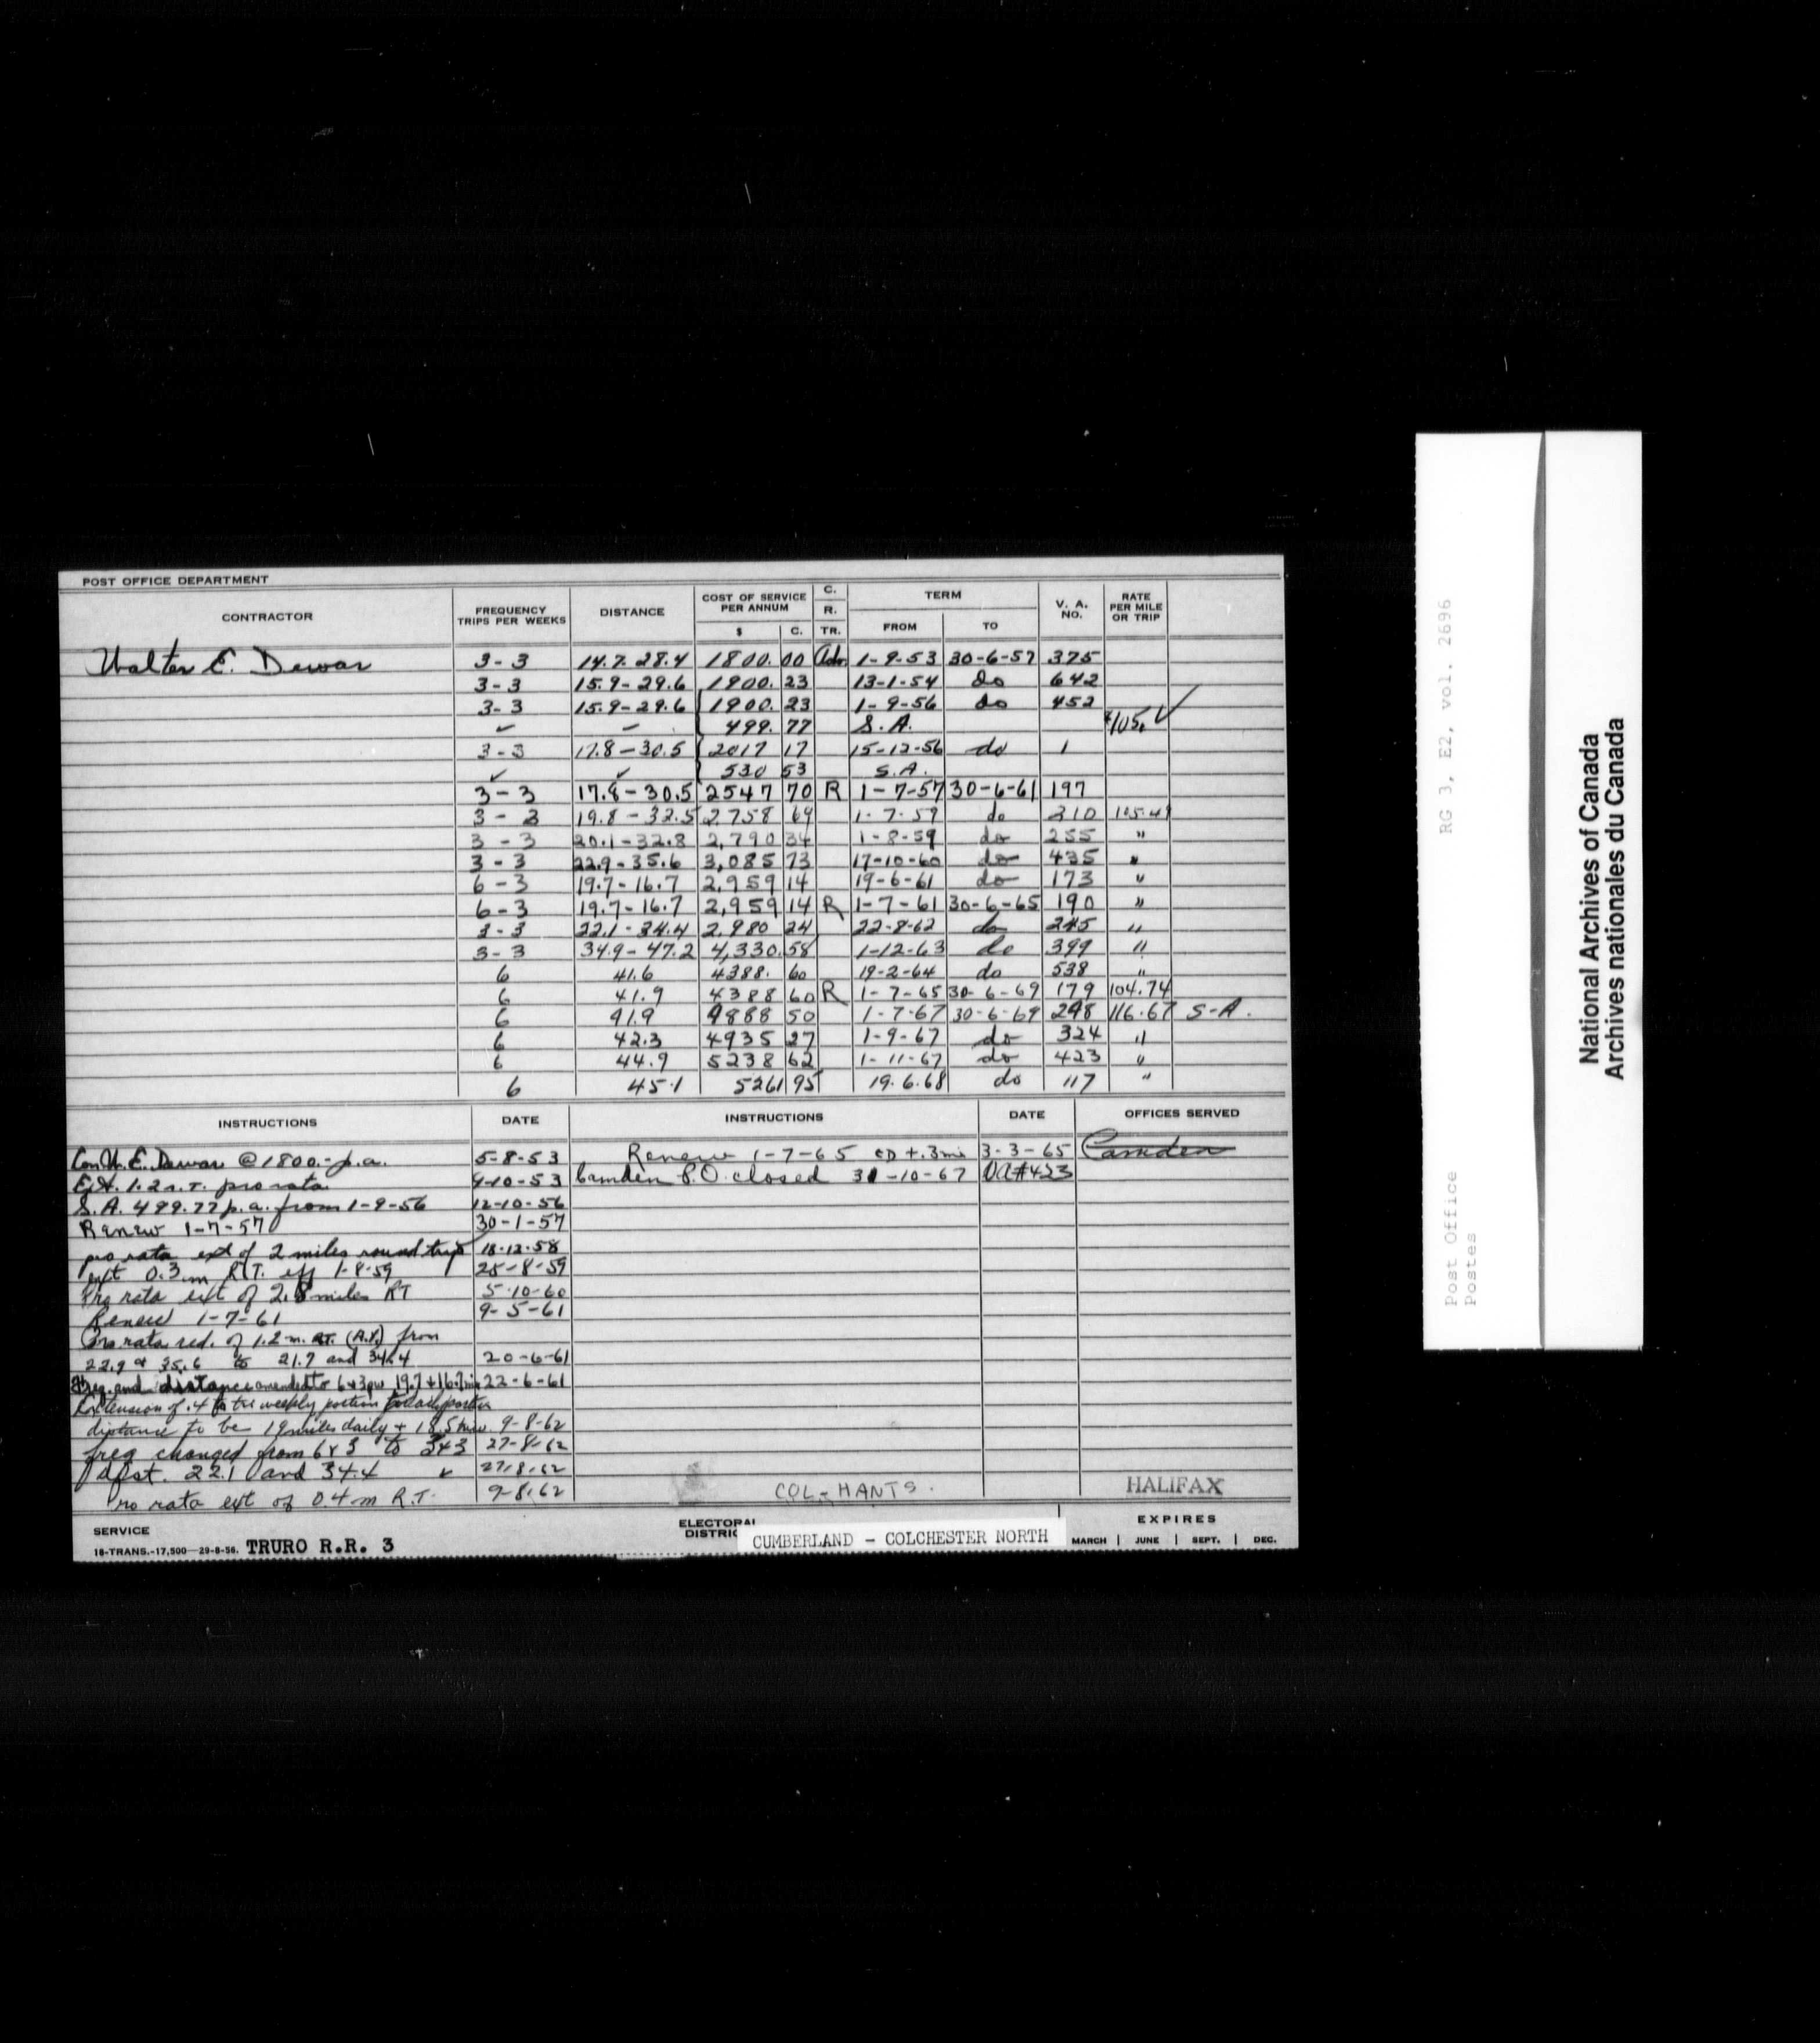 POST OFFICE DEPARTMENT
CONTRACTOR FREQUENCY TRIPS PER WEEKS DISTANCE COST OF SERVICE PER ANNUM $ C. C. R. TR. TERM FROM TO V. A. NO. RATE PER MILE OR TRIP
Walter E. Dewar 3-3 14.7. 28.4 1800. 00 Adv. 1-9-53 30-6-57 375
3-3 15.9-29.6 1900. 23 13-1-54 do 642
3-3 15.9-29.6 1900. 23 1-9-56 do 452
✓ 499. 77 S.A. $105. ✓
3-3 17.8-30.5 2017 17 15-12-56 do 1
✓ ✓ 530 53 S.A.
3-3 17.8-30.5 2547 70 R 1-7-57 30-6-61 197
3-3 19.8-32.5 2,758 69 1-7-59 do 210 105.49
3-3 20.1-32.8 2,790 34 1-8-59 do 255 "
3-3 22.9-35.6 3,085 73 17-10-60 do 435 "
6-3 19.7-16.7 2,959 14 19-6-61 do 173 "
6-3 19.7-16.7 2,959 14 R 1-7-61 30-6-65 190 "
3-3 22.1-34.4 2,980 24 22-8-62 do 245 "
3-3 34.9-47.2 4,330. 58 1-12-63 do 399 "
6 41.6 4388. 60 19-2-64 do 538 "
6 41.9 4388 60 R 1-7-65 30-6-69 179 104.74
6 41.9 4888 50 1-7-67 30-6-69 248 116.67 S-A.
6 42.3 4935 27 1-9-67 do 324 "
6 44.9 5238 62 1-11-67 do 423 "
6 45.1 5261 95 19.6.68 do 117 "
INSTRUCTIONS DATE INSTRUCTIONS DATE OFFICES SERVED
Con. W. E. Dewar @ 1800.- p.a. 5-8-53 Renew 1-7-65 CD +.3mi 3-3-65 Camden
Ext. 1.2 r.T. pro rata 9-10-53 Camden P.O. closed 31-10-67 VA#423
S.A. 499.77 p.a. from 1-9-56 12-10-56
Renew 1-7-57 30-1-57
pro rata ext of 2 miles round trip 18-12-58
ext 0.3 m R.T. eff 1-8-59 25-8-59
Pro rata ext of 2.8 miles RT 5-10-60
Renew 1-7-61 9-5-61
Pro rata red. of 1.2 m. RT. (A.Y.) from
22.9 & 35.6 to 21.7 and 34.4 20-6-61
Freq. and distance amended to 6+3pw 19.7+16.7 mi 22-6-61
Extension of .4 to tri weekly portion
distance to be 19 miles daily + 18.5 9-8-62
freq changed from 6x3 to 3x3 27-8-62
dist. 22.1 and 34.4 ✓ 27-8-62
Pro rata ext of 0.4 m R.T. 9-8-62 COL-HANTS. HALIFAX
SERVICE ELECTORAL DISTRIC CUMBERLAND - COLCHESTER NORTH EXPIRES
18-TRANS.-17,500-29-8-56. TRURO R.R. 3 MARCH | JUNE | SEPT. | DEC.
RG 3, E2, vol. 2696
Post Office
Postes
National Archives of Canada
Archives nationales du Canada